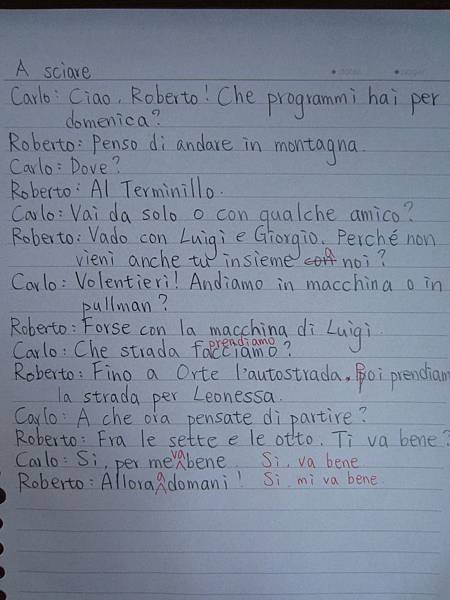 A sciare
Carlo: Ciao, Roberto! Che programmi hai per
domenica?
Roberto: Penso di andare in montagna.
Carlo: Dove?
Roberto: Al Terminillo.
Carlo: Vai da solo o con qualche amico?
Roberto: Vado con Luigi e Giorgio. Perché non
vieni anche tu insieme con a noi?
Carlo: Volentieri! Andiamo in macchina o in
pullman?
Roberto: Forse con la macchina di Luigi.
prendiamo
Carlo: Che strada facciamo?
Roberto: Fino a Orte l'autostrada. Poi prendiam
la strada per Leonessa.
Carlo: A che ora pensate di partire?
Roberto: Fra le sette e le otto. Ti va bene?
Carlo: Si, per me va bene. Si, va bene
Roberto: Allora a domani! Si mi va bene.